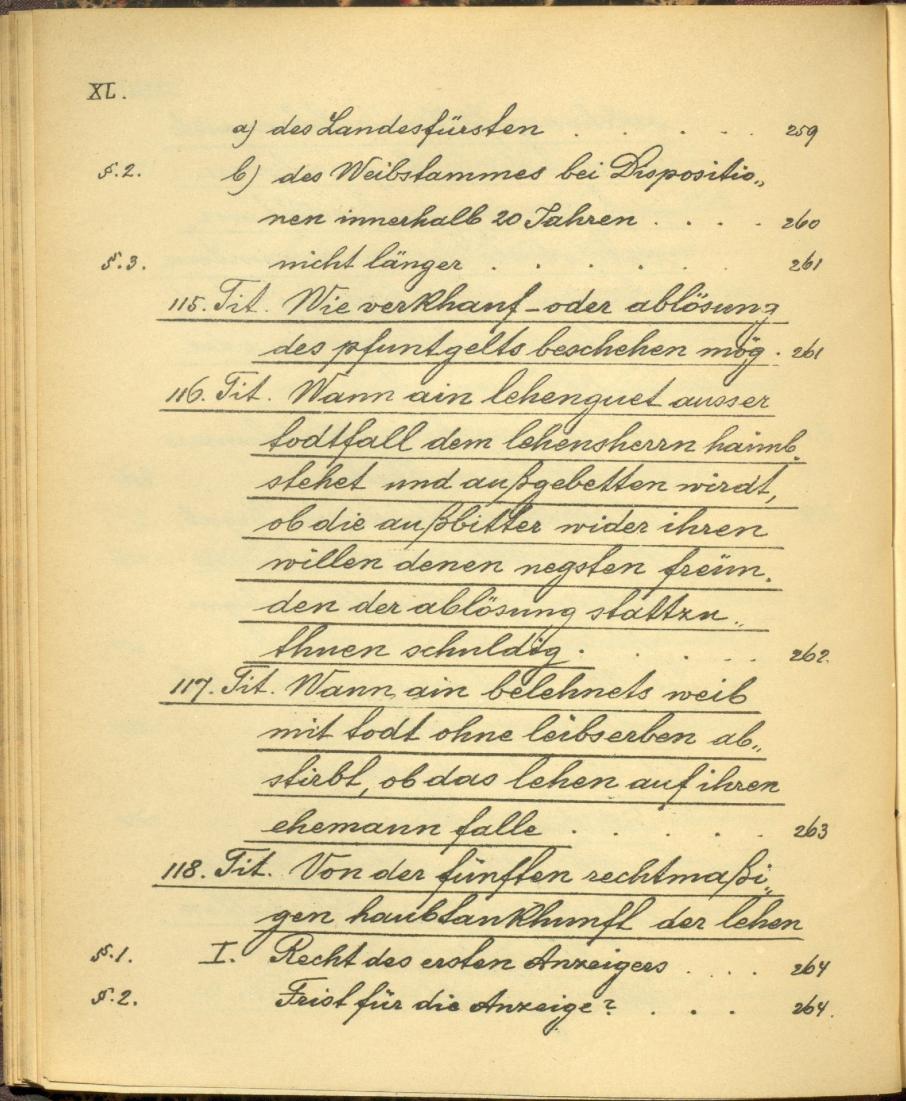 XL.
a) des Landesfürsten . . . . . 259
§.2. b) des Weibstammes bei Dispositio„
nen innerhalb 20 Jahren . . . . 260
§.3. nicht länger . . . . . . 261
115. Tit. Wie verkhauf- oder ablösung
des pfuntgelts beschehen mög . 261
116. Tit. Wann ain lehenguet ausser
todtfall dem lehensherrn haimb„
stehet und außgebetten wirdt,
ob die außbitter wider ihren
willen denen negsten freün„
den der ablösung stattzu„
thuen schuldig . . . . . 262.
117. Tit. Wann ain belehnets weib
mit todt ohne leibserben ab„
stirbt, ob das lehen auf ihren
ehemann falle . . . . . 263
118. Tit. Von der fünften rechtmaßi„
gen haubtankhunft der lehen
§.1. I. Recht des ersten Anzeigers . . . . 264
§.2. Frist für die Anzeige? . . . 264.